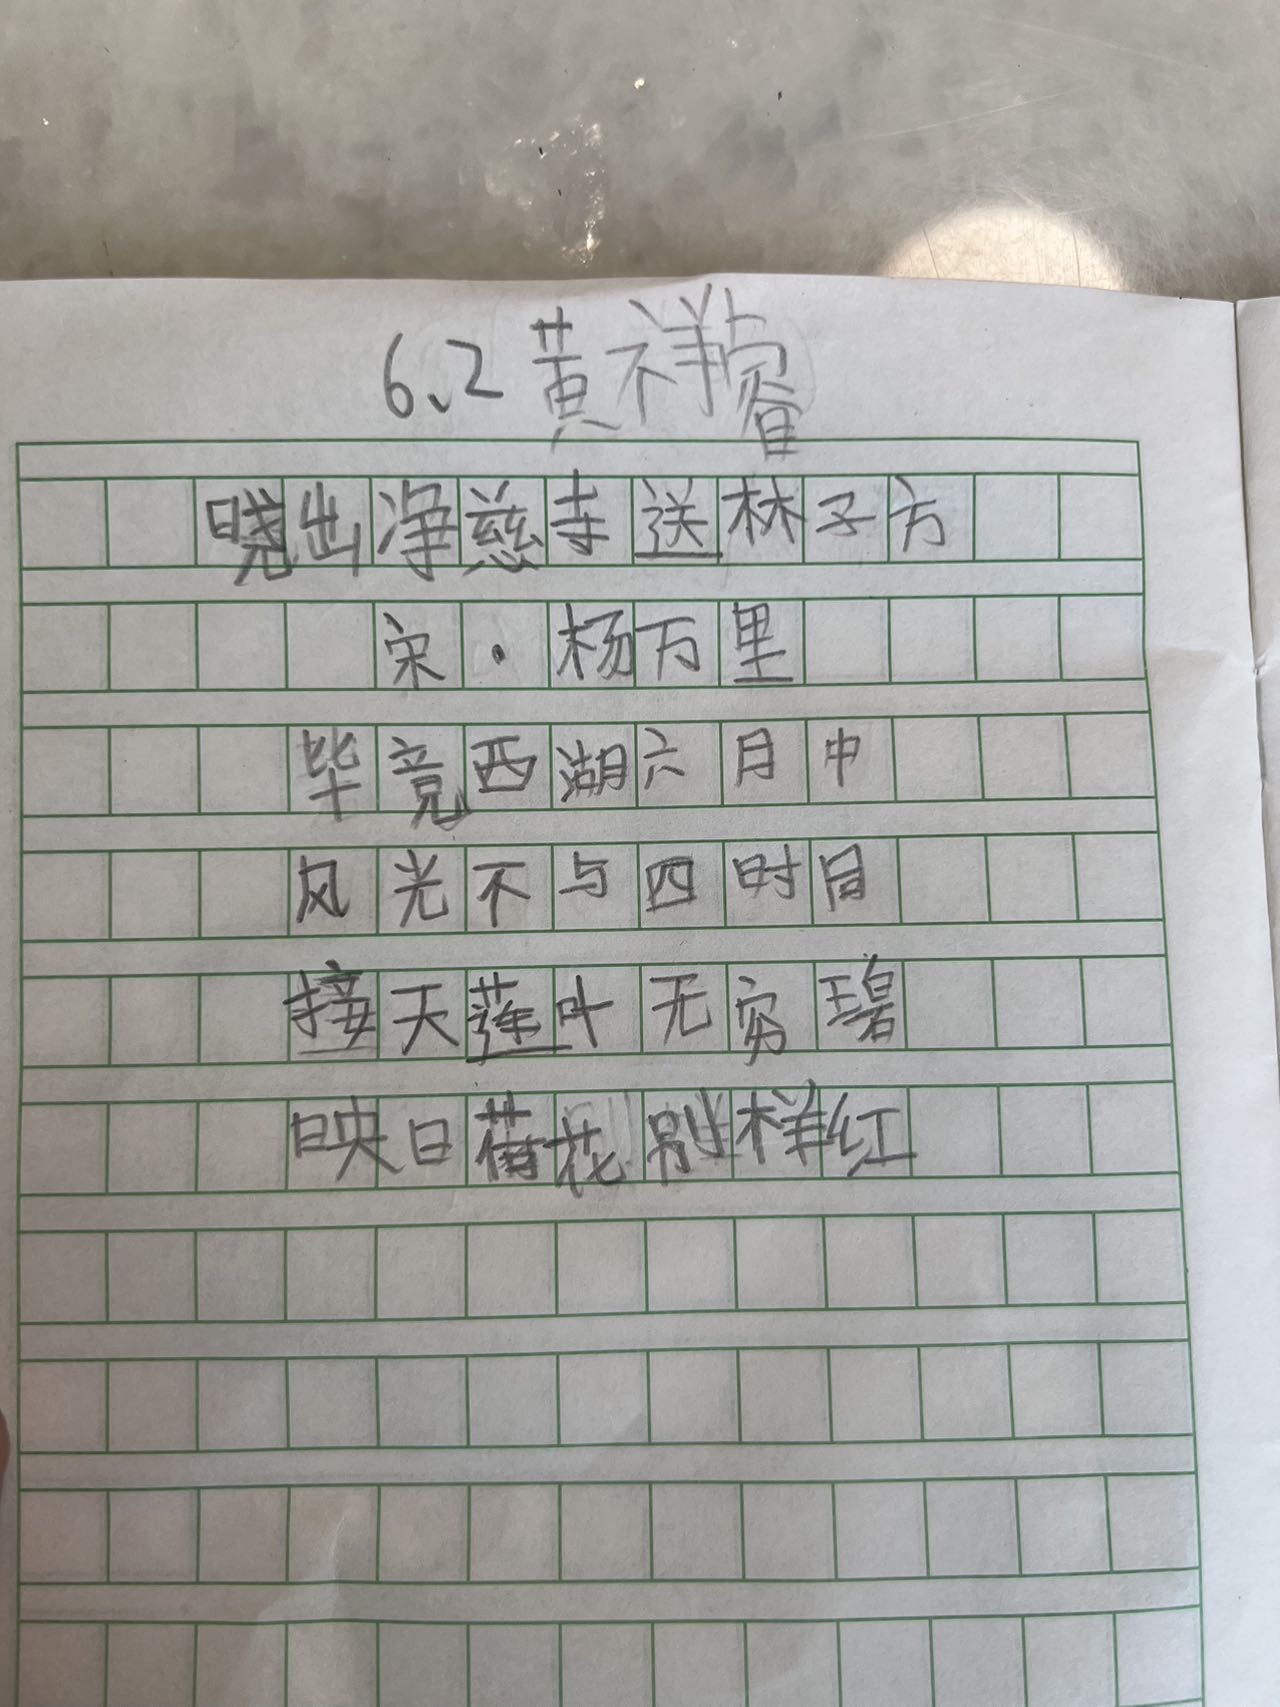 6.2 黄祥睿
晓出净慈寺送林子方
宋·杨万里
毕竟西湖六月中
风光不与四时同
接天莲叶无穷碧
映日荷花别样红